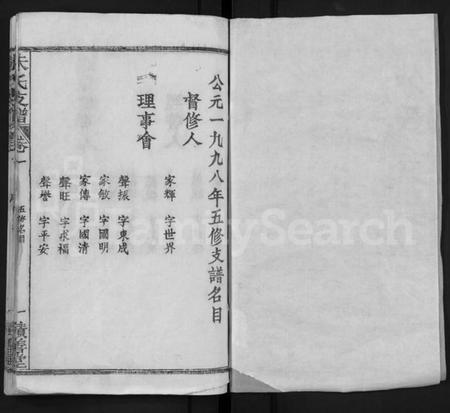 公元一九九八年五修支譜名目
督修人
家輝 字世界
理事會
聲振 字東成
家敏 字國明
家傳 字國清
聲旺 字求福
聲譽 字平安
朱氏支譜
卷一
五修名目
積善堂
FamilySearch